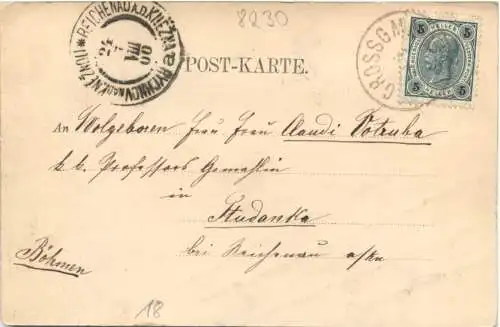 8230
REICHENAU A.D. KNĚŽNA
RYCHNOV NAD KNĚŽNOU
24
7
00
VIII
GROSSGM
5 5
HELLER HELLER
5 5
POST-KARTE.
An Wolgeboren Frau Frau Claudi Votruba
k. k. Professors Gemahlin
in
Studanka
bei Reichenau a/Kn
Böhmen
18